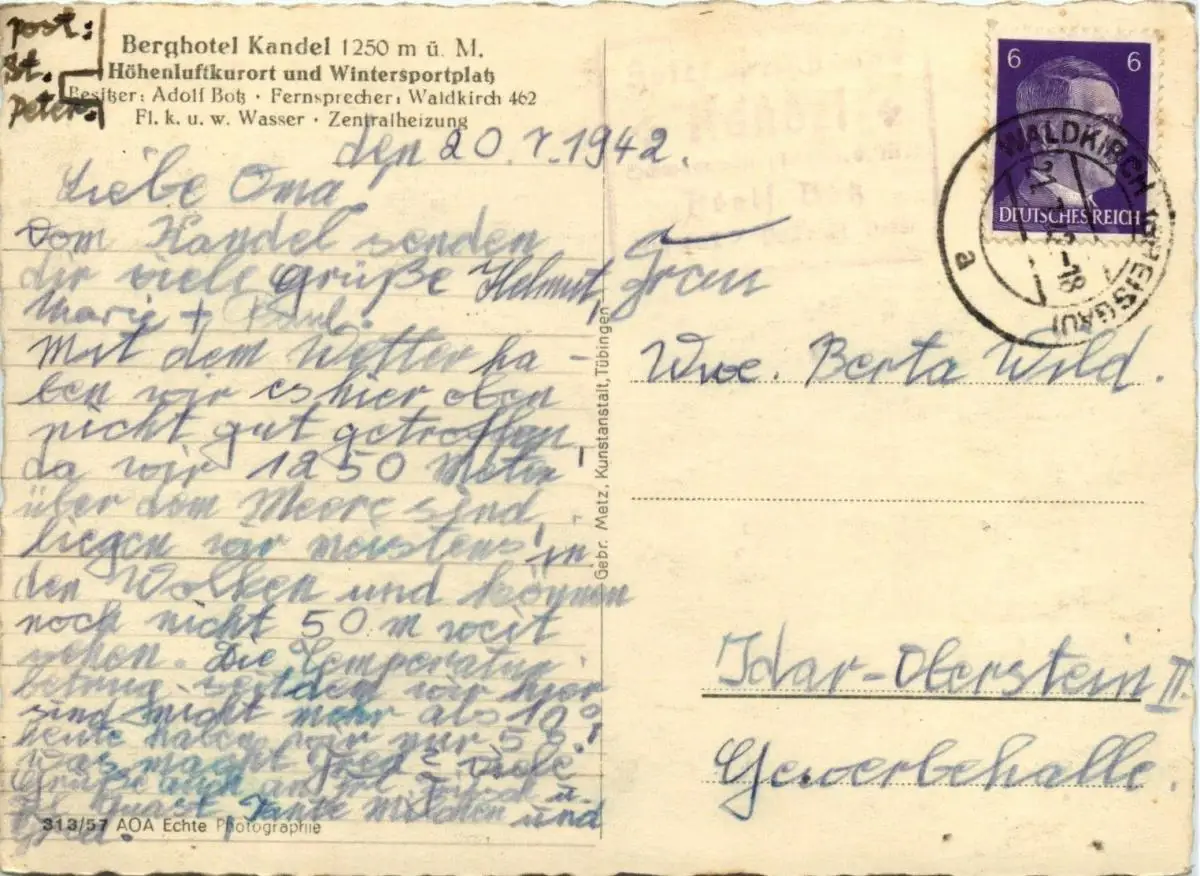 post:
St.
Peter.
Berghotel Kandel 1250 m ü. M.
Höhenluftkurort und Wintersportplatz
Besitzer: Adolf Botz · Fernsprecher: Waldkirch 462
Fl. k. u. w. Wasser · Zentralheizung
den 20.7.1942.
Liebe Oma
Vom Kandel senden
dir viele grüße Helmut,
Marie + Paul.
Mit dem Wetter ha-
ben wir es hier oben
nicht gut getroffen,
da wir 1250 Meter
über dem Meere sind,
liegen wir meistens in
den Wolken und können
noch nicht 50 m weit
sehen. Die Temperatur
betrug seitdem wir hier
sind nicht mehr als 10°
heute haben wir nur 5°!
was macht viele
Grüße auch an u.
Tante und
313/57 AOA Echte Photographie
Gebr. Metz, Kunstanstalt, Tübingen
6 6
DEUTSCHES REICH
WALDKIRCH (BREISGAU)
21. -18
a
Frau
Wwe. Berta Wild.
Idar-Oberstein II.
Gewerbehalle.